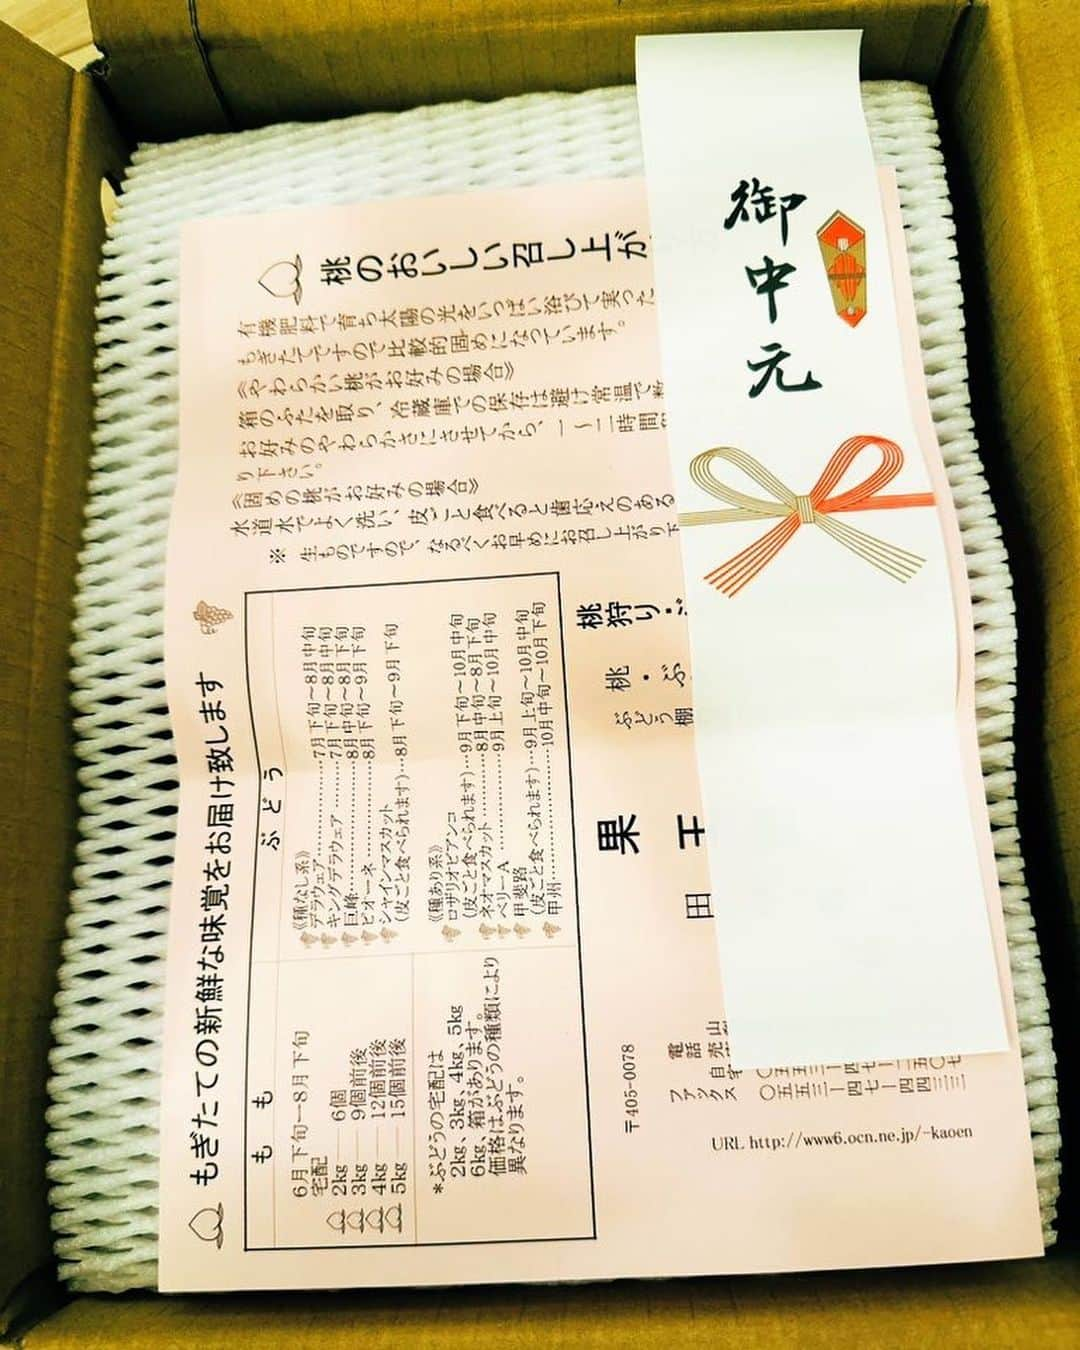 御中元
桃のおいしい召し上が
有機肥料で育ち太陽の光をいっぱい浴びて実った
もぎたてですので比較的固めになっています。
《やわらかい桃がお好みの場合》
箱のふたを取り、冷蔵庫での保存は避け常温で
お好みのやわらかさにさせてから、一〜二時間
り下さい。
《固めの桃がお好みの場合》
水道水でよく洗い、皮ごと食べると歯応えのある
※ 生ものですので、なるべくお早めにお召し上がり下
もぎたての新鮮な味覚をお届け致します
もも
6月下旬ー8月下旬
宅配
2kg — 6個
3kg — 9個前後
4kg — 12個前後
5kg — 15個前後
*ぶどうの宅配は
2kg、3kg、4kg、5kg
6kg、箱があります。
価格はぶどうの種類により
異なります。
ぶどう
《種なし系》
デラウェア………7月下旬〜8月中旬
キングデラウェア……7月下旬〜8月中旬
巨峰………8月中旬〜8月下旬
ピオーネ………8月下旬〜9月下旬
シャインマスカット
(皮ごと食べられます)…8月下旬〜9月下旬
《種あり系》
ロザリオビアンコ
(皮ごと食べられます)…9月下旬〜10月中旬
ネオマスカット………8月中旬〜8月下旬
ベリーA………9月上旬〜10月中旬
甲斐路
(皮ごと食べられます)…9月上旬〜10月中旬
甲州………10月中旬〜10月下旬
桃狩り・ぶ
桃・ぶ
ぶどう棚
果
田
〒405-0078
山
電話
売
自宅
ファックス
〇五五三ー四七ー
URL http://www6.ocn.ne.jp/~kaoen